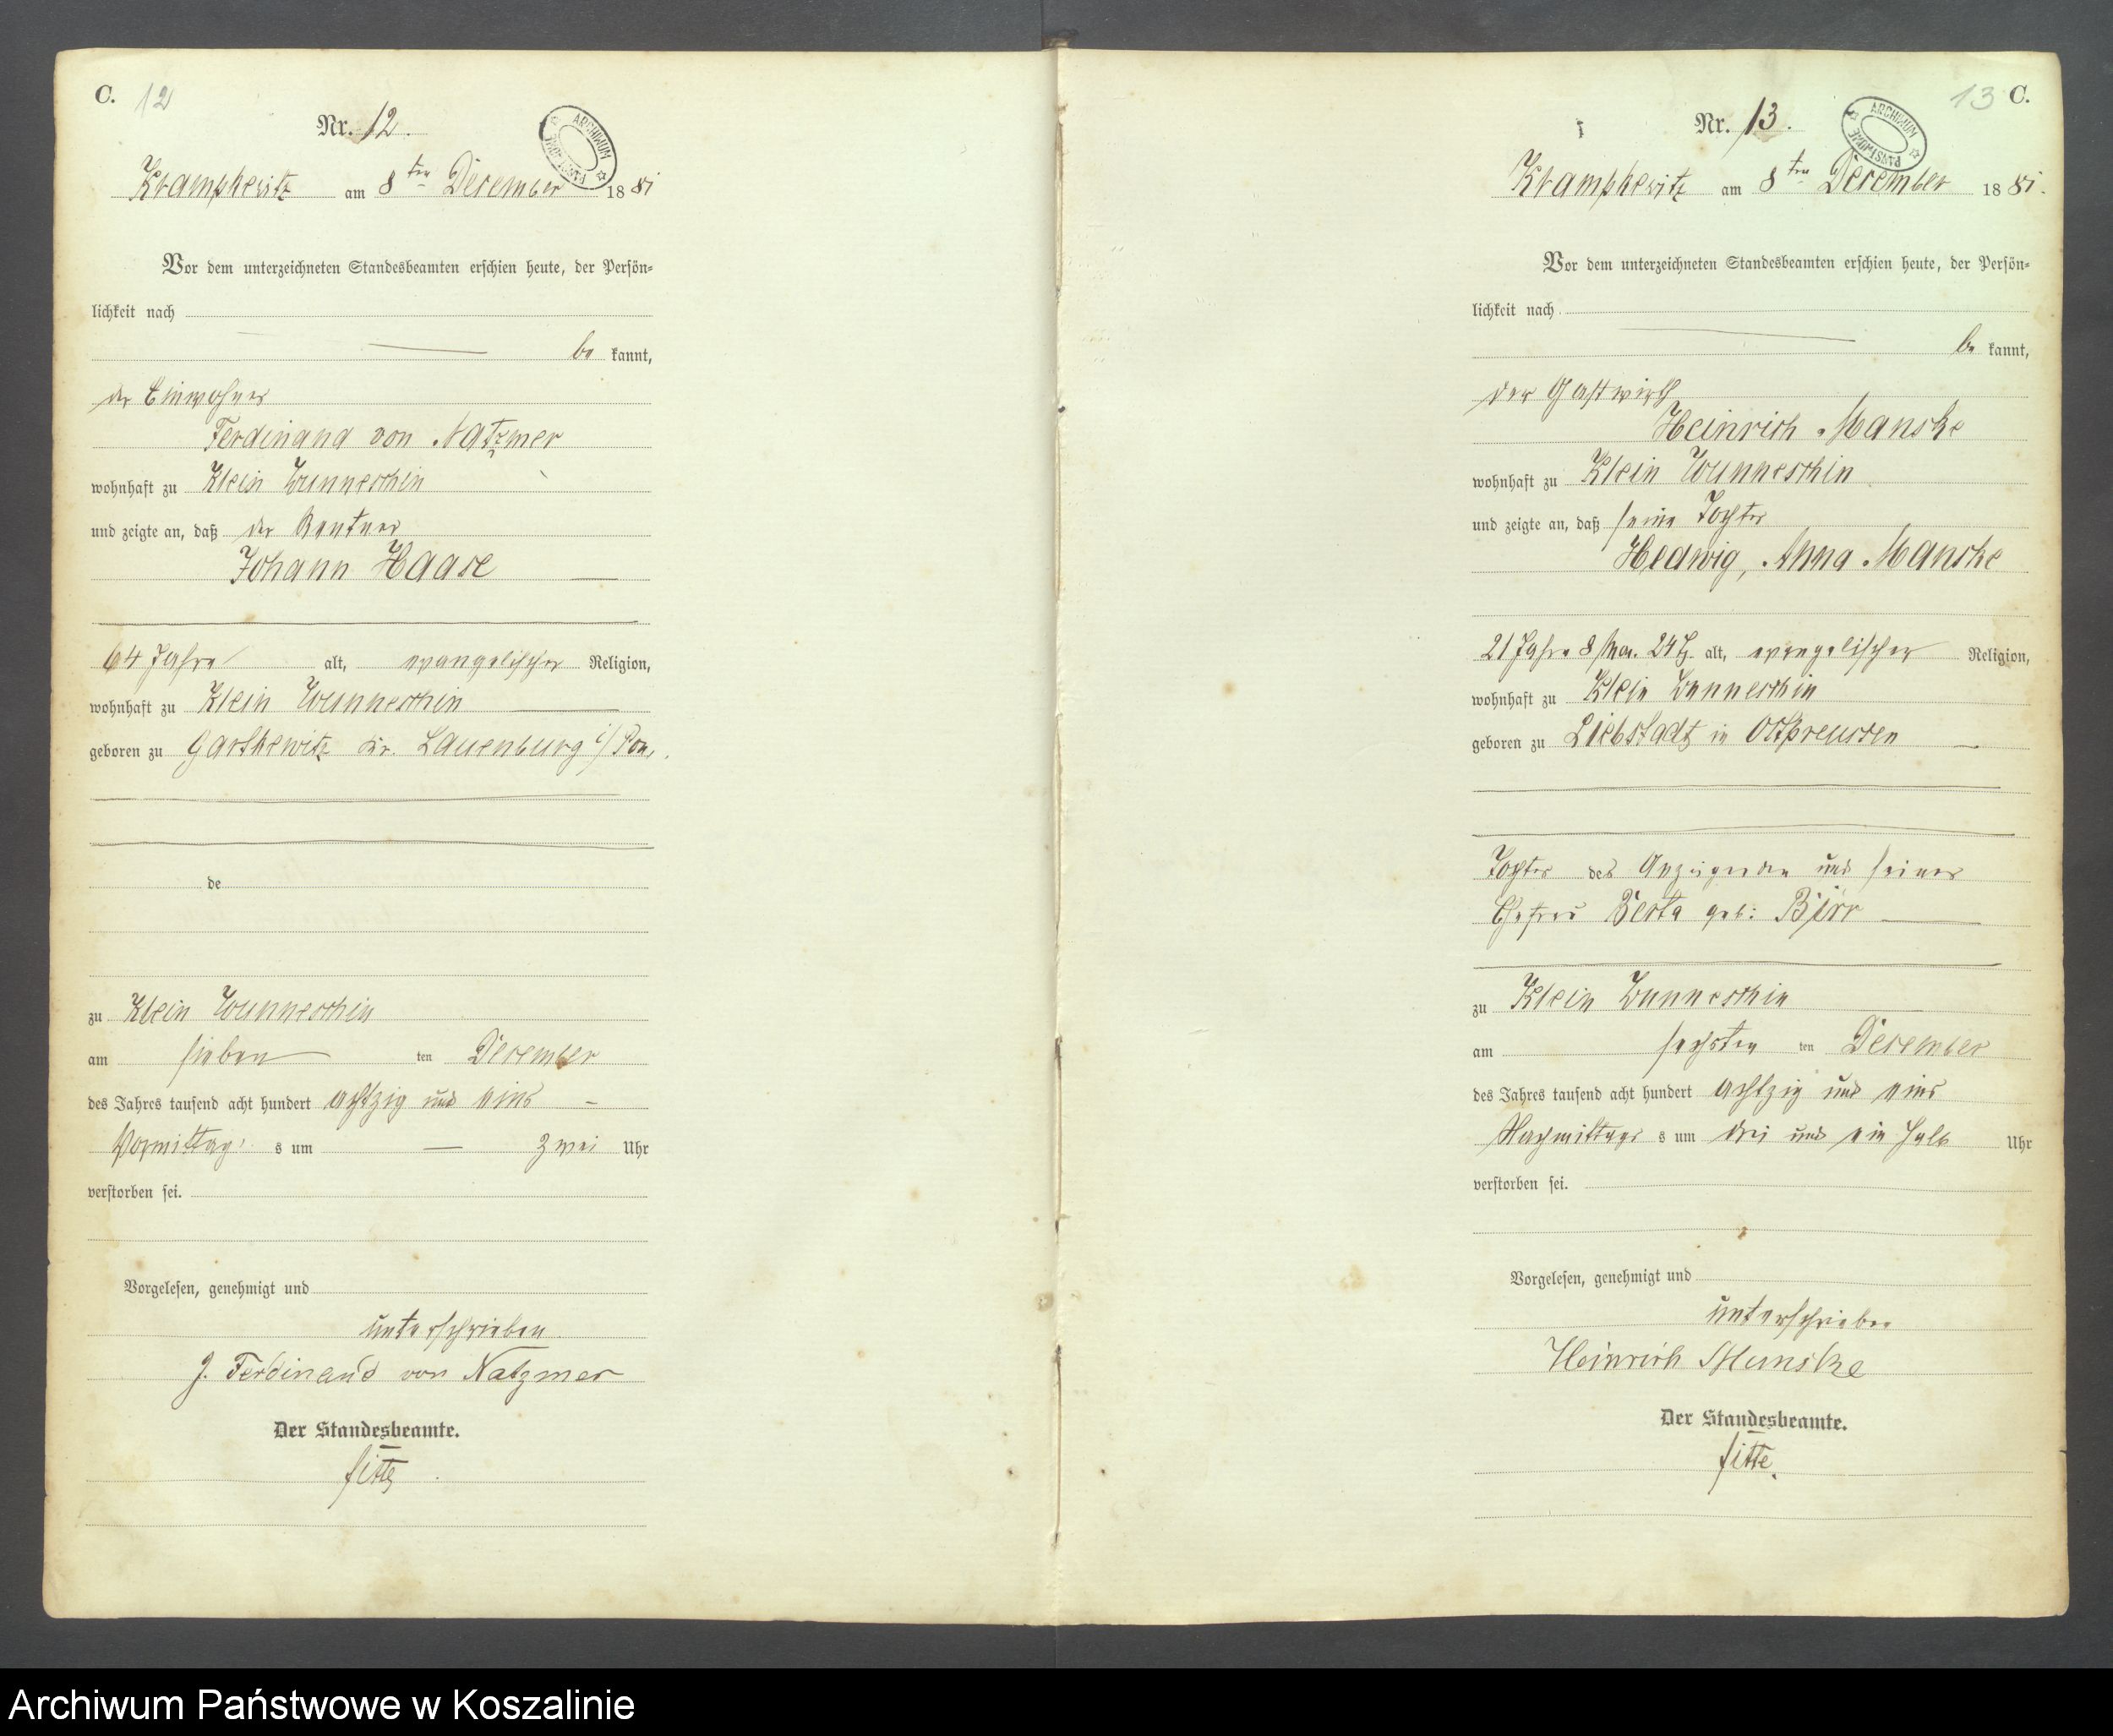 C. 12
Nr. 12.
ARCHIWUM PAŃSTWOWE
Krampkewitz am 8ten December 1881
Vor dem unterzeichneten Standesbeamten erschien heute, der Persön-
lichkeit nach
be kannt,
der Einwohner
Ferdinand von Natzmer
wohnhaft zu Klein Wunneschin
und zeigte an, daß der Rentner
Johann Haase
64 Jahre alt, evangelischer Religion,
wohnhaft zu Klein Wunneschin
geboren zu Gartkewitz Kr. Lauenburg i/ Pom.
de
zu Klein Wunneschin
am sieben ten December
des Jahres tausend acht hundert achtzig und eins
Vormittag s um zwei Uhr
verstorben sei.
Vorgelesen, genehmigt und
unterschrieben
J. Ferdinand von Natzmer
Der Standesbeamte.
13 C.
Nr. 13.
ARCHIWUM PAŃSTWOWE
Krampkewitz am 8ten December 1881.
Vor dem unterzeichneten Standesbeamten erschien heute, der Persön-
lichkeit nach
be kannt,
der Gastwirth
Heinrich Manske
wohnhaft zu Klein Wunneschin
und zeigte an, daß seine Tochter
Hedwig, Anna Manske
21 Jahre 8 Mon. 24 T. alt, evangelischer Religion,
wohnhaft zu Klein Wunneschin
geboren zu Liebstadt in Ostpreussen
Tochter des Anzeigenden und seiner
Ehefrau Berta geb: Birr
zu Klein Wunneschin
am sechsten ten December
des Jahres tausend acht hundert achtzig und eins
Nachmittags s um drei und ein halb Uhr
verstorben sei.
Vorgelesen, genehmigt und
unterschrieben
Heinrich Manske
Der Standesbeamte.
Archiwum Państwowe w Koszalinie